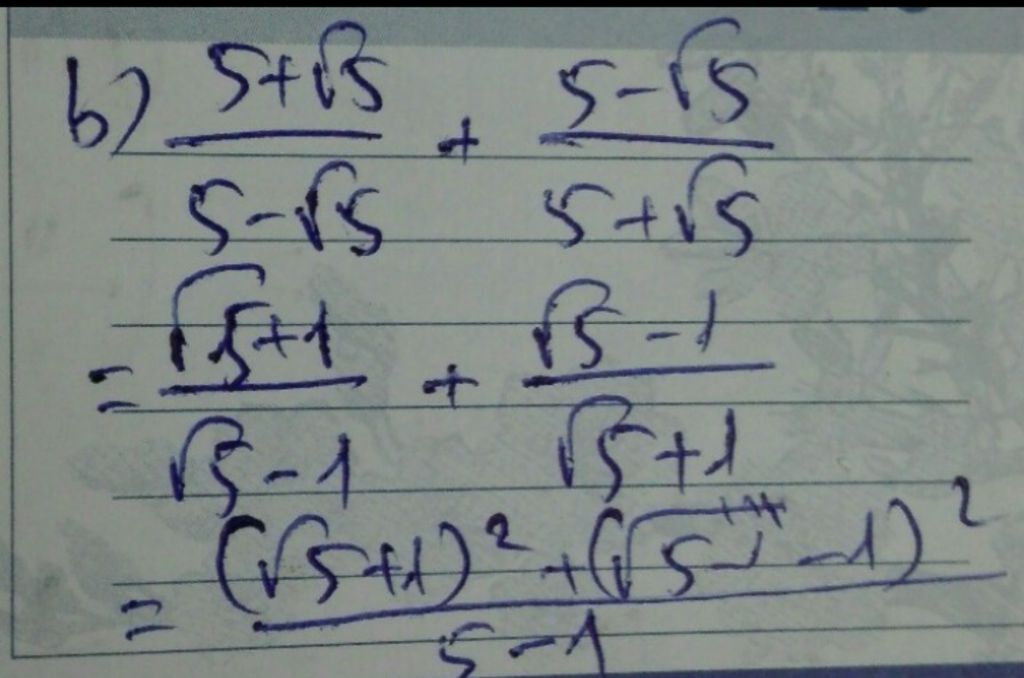 b) (5+√5)/(5-√5) + (5-√5)/(5+√5)
= (√5+1)/(√5-1) + (√5-1)/(√5+1)
= ((√5+1)² + (√5-1)²)/(5-1)